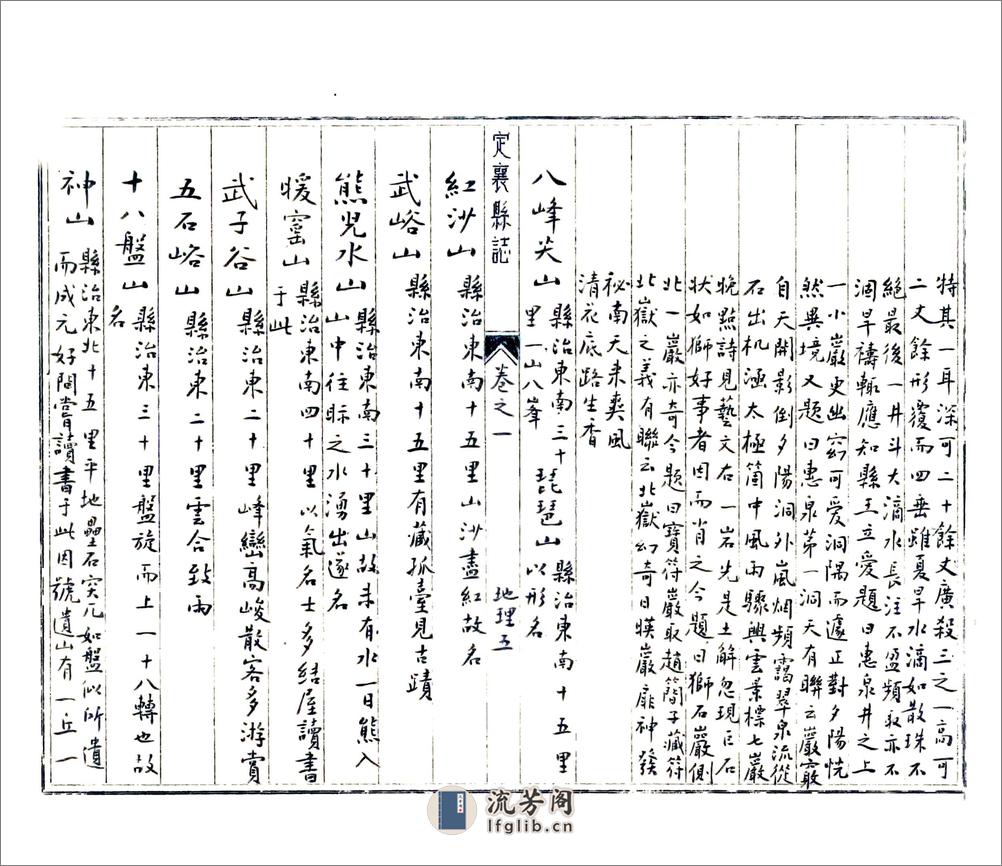 特其一耳深可二十餘丈廣殺三之一高可
二丈餘形覆而四垂雖夏旱水滴如散珠不
絕最後一井斗大滴水長注不盈頻取亦不
涸旱禱輒應知縣王立爱題曰惠泉井之上
一小巖更幽窈可爱洞隅而遽正對夕陽恍
然異境又题曰惠泉苐一洞天有聯云巖竅
自天開影倒夕陽洞外嵐烟頻靄翠泉流從
石出机涵太極箇中風雨驟興雲景標七巖
晚點詩見藝文右一岩先是土解忽現巨石
状如獅好事者因而肖之今題曰獅石巖側
北一巖亦奇今題曰寶符巖取趙簡子藏符
北嶽之義有聯云北嶽幻奇日暎巖扉神發
祕南天来爽風
清衣底路生香
八峰尖山 縣治東南三十
里一山八峯
琵琶山 縣治東南十五里
以形名
定襄縣誌 卷之一 地理五
紅沙山 縣治東南十五里山沙盡紅故名
武峪山 縣治東南十五里有藏孤臺見古蹟
熊兒水山 縣治東南三十里山故未有水一日熊入
山中往眎之水湧出遂名
暖窰山 縣治東南四十里以氣名士多结屋讀書
于此
武子谷山 縣治東二十里峰巒高峻散客多游賞
五石峪山 縣治東二十里雲合致雨
十八盤山 縣治東三十里盤旋而上一十八轉也故
名
神山 縣治東北十五里平地壘石突兀如盤似所遺
而成元好問嘗讀書于此因號遺山有一丘一
流芳阁
lfglib.cn